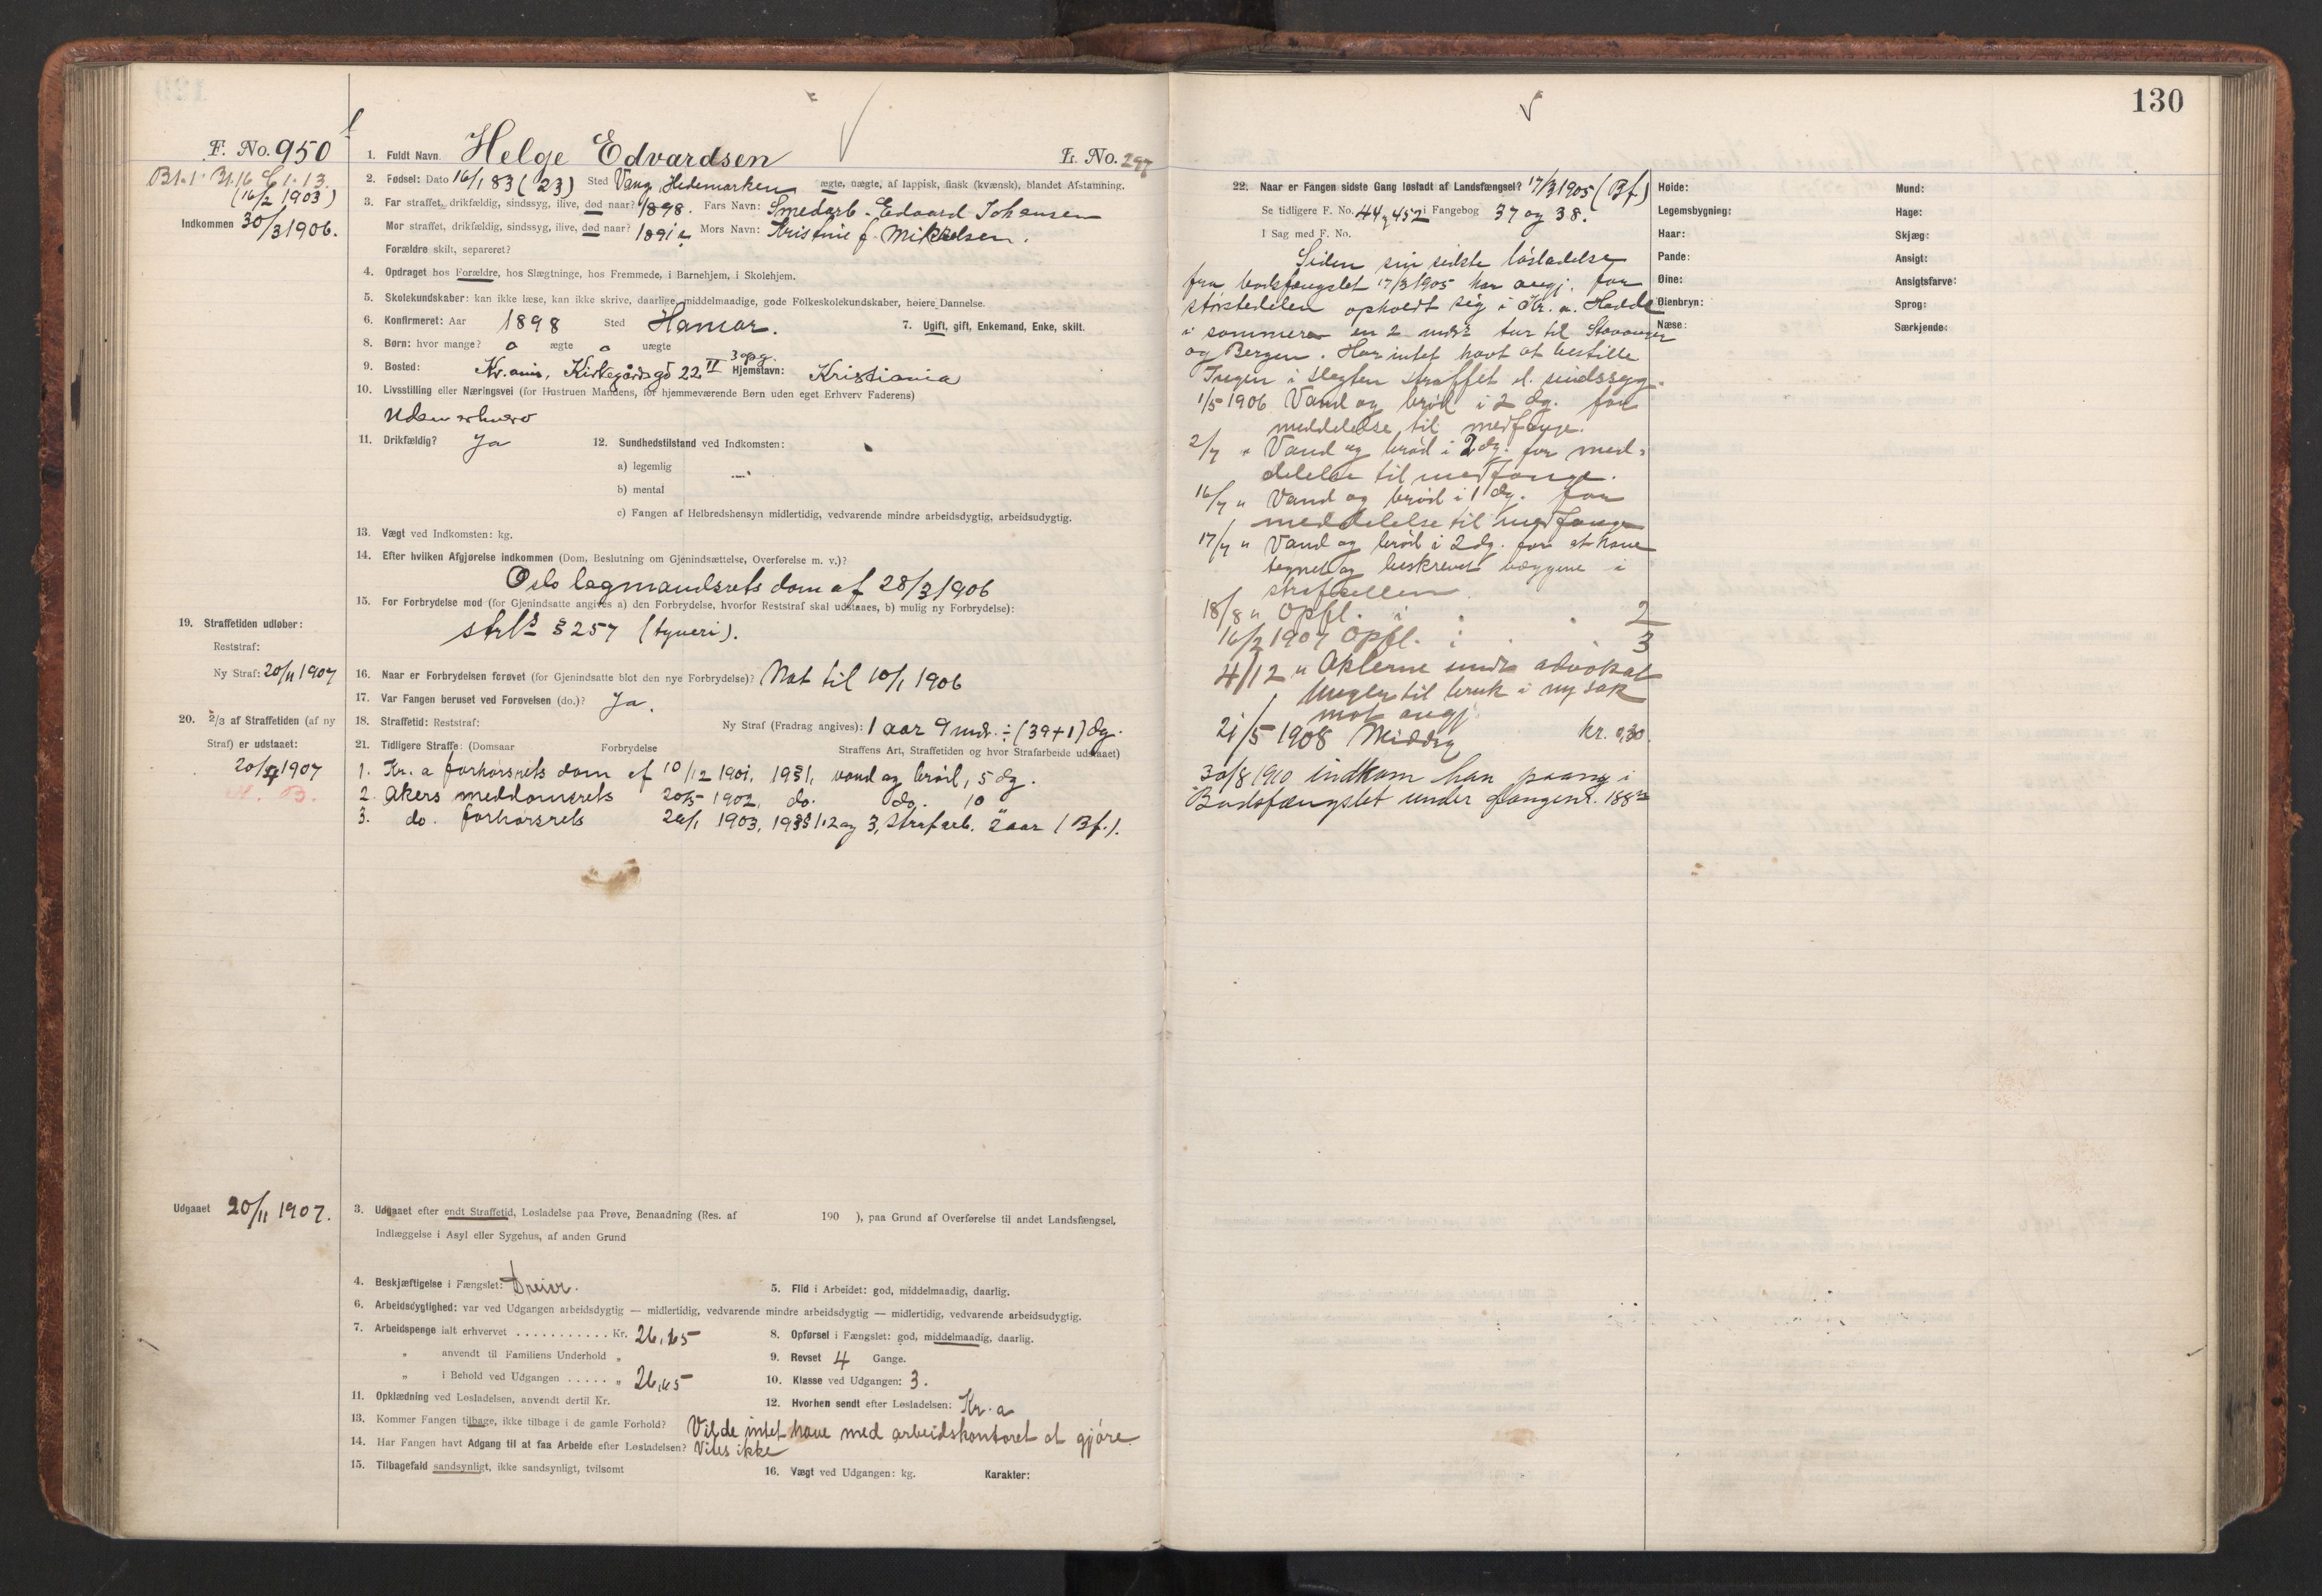 F. No. 950
Indkommen 30/3 1906.
(16/2 1903)
1. Fuldt Navn Helge Edvardsen L. No. 297
2. Fødsel: Dato 16/1 83 (23) Sted Vang, Hedemarken ægte, uægte, af lappisk, finsk (kvænsk), blandet Afstamning.
3. Far straffet, drikfældig, sindssyg, ilive, død naar? 1898. Fars Navn: Smedarb. Edvard Johansen
Mor straffet, drikfældig, sindssyg, ilive, død naar? 1891 Mors Navn: Kristine f. Mikkelsen.
Forældre skilt, separeret?
4. Opdraget hos Forældre, hos Slægtninge, hos Fremmede, i Barnehjem, i Skolehjem.
5. Skolekundskaber: kan ikke læse, kan ikke skrive, daarlige, middelmaadige, gode Folkeskolekundskaber, høiere Dannelse.
6. Konfirmeret: Aar 1898 Sted Hamar. 7. Ugift, gift, Enkemand, Enke, skilt.
8. Børn: hvor mange? o ægte o uægte
9. Bosted: Kr.ania, Kirkegårdsgd 22 II 3 opg. Hjemstavn: Kristiania
10. Livsstilling eller Næringsvei (for Hustruen Mandens, for hjemmeværende Børn uden eget Erhverv Faderens)
Uden erhverv
11. Drikfældig? Ja 12. Sundhedstilstand ved Indkomsten:
a) legemlig
b) mental
c) Fangen af Helbredshensyn midlertidig, vedvarende mindre arbeidsdygtig, arbeidsudygtig.
13. Vægt ved Indkomsten: kg.
14. Efter hvilken Afgjørelse indkommen (Dom, Beslutning om Gjenindsættelse, Overførelse m. v.)?
Oslo lagmandsrets dom af 28/3 1906
15. For Forbrydelse mod (for Gjenindsatte angives a) den Forbrydelse, hvorfor Reststraf skal udstaaes, b) mulig ny Forbrydelse):
strl's § 257 (tyveri).
19. Straffetiden udløber:
Reststraf:
Ny Straf: 20/11 1907
16. Naar er Forbrydelsen forøvet (for Gjenindsatte blot den nye Forbrydelse)? Nat til 10/1 1906
17. Var Fangen beruset ved Forøvelsen (do.)? Ja.
20. 2/3 af Straffetiden (af ny
Straf) er udstaaet:
1907
18. Straffetid: Reststraf: Ny Straf (Fradrag angives): 1 aar 9 mdr. ÷ (39+1) dg.
21. Tidligere Straffe: (Domsaar Forbrydelse Straffens Art, Straffetiden og hvor Strafarbeide udstaaet)
1. Kr.a forhørsrets dom af 10/12 1901, 19 § 1, vand og brød, 5 dg.
2. Akers meddomsrets 20/5 1902, do. do. 10
3. do. forhørsrets 1903, 19 §§ 1, 2 og 3, strafarb. 2 aar (Bf.).
Udgaaet 20/11 1907.
3. Udgaaet efter endt Straffetid, Løsladelse paa Prøve, Benaadning (Res. af 190 ), paa Grund af Overførelse til andet Landsfængsel,
Indlæggelse i Asyl eller Sygehus, af anden Grund
4. Beskjæftigelse i Fængslet: Dreier. 5. Flid i Arbeidet: god, middelmaadig, daarlig.
6. Arbeidsdygtighed: var ved Udgangen arbeidsdygtig — midlertidig, vedvarende mindre arbeidsdygtig — midlertidig, vedvarende arbeidsudygtig.
7. Arbeidspenge ialt erhvervet . . . . . . . . . . . Kr. 26,65 8. Opførsel i Fængslet: god, middelmaadig, daarlig.
„ anvendt til Familiens Underhold „ 9. Revset 4 Gange.
„ i Behold ved Udgangen . . . . . „ 26,65 10. Klasse ved Udgangen: 3.
11. Opklædning ved Løsladelsen, anvendt dertil Kr. 12. Hvorhen sendt efter Løsladelsen: Kr.a
13. Kommer Fangen tilbage, ikke tilbage i de gamle Forhold? Vilde intet have med arbeidskontoret at gjøre.
14. Har Fangen havt Adgang til at faa Arbeide efter Løsladelsen? Vides ikke
15. Tilbagefald sandsynligt, ikke sandsynligt, tvilsomt 16. Vægt ved Udgangen: kg. Karakter:
130
22. Naar er Fangen sidste Gang løsladt af Landsfængsel? 17/3 1905 (Bf.)
Se tidligere F. No. 44 og 452 i Fangebog 37 og 38.
I Sag med F. No.
Siden sin sidste løsladelse
fra bodsfængslet 17/3 1905 har angj. for
størstedelen opholdt sig i Kr.a. Havde
i sommeren en 2 mdrs tur til Stavanger
og Bergen. Har intet havt at bestille
Ingen i slegten straffet el. sindssyg.
1/5 1906 Vand og brød i 2 dg. for
meddelelse til medfange.
2/7 " Vand og brød i 2 dg. for med-
delelse til medfange.
16/7 " Vand og brød i 1 dg. for
meddelelse til medfange
17/7 " Vand og brød i 2 dg. for at have
tegnet og beskrevet væggene i
strafcellen.
18/8 " Opfl. i 2
16/2 1907 Opfl. i 3
4/12 " Akterne sendt advokat
til bruk i ny sak
mot angj.
21/5 1908 Middag kr. 0,30.
30/8 1910 indkom han paany i
Bodsfængslet under fangenr. 188
Høide:
Legemsbygning:
Haar:
Pande:
Øine:
Øienbryn:
Næse:
Mund:
Hage:
Skjæg:
Ansigt:
Ansigtsfarve:
Sprog:
Særkjende: